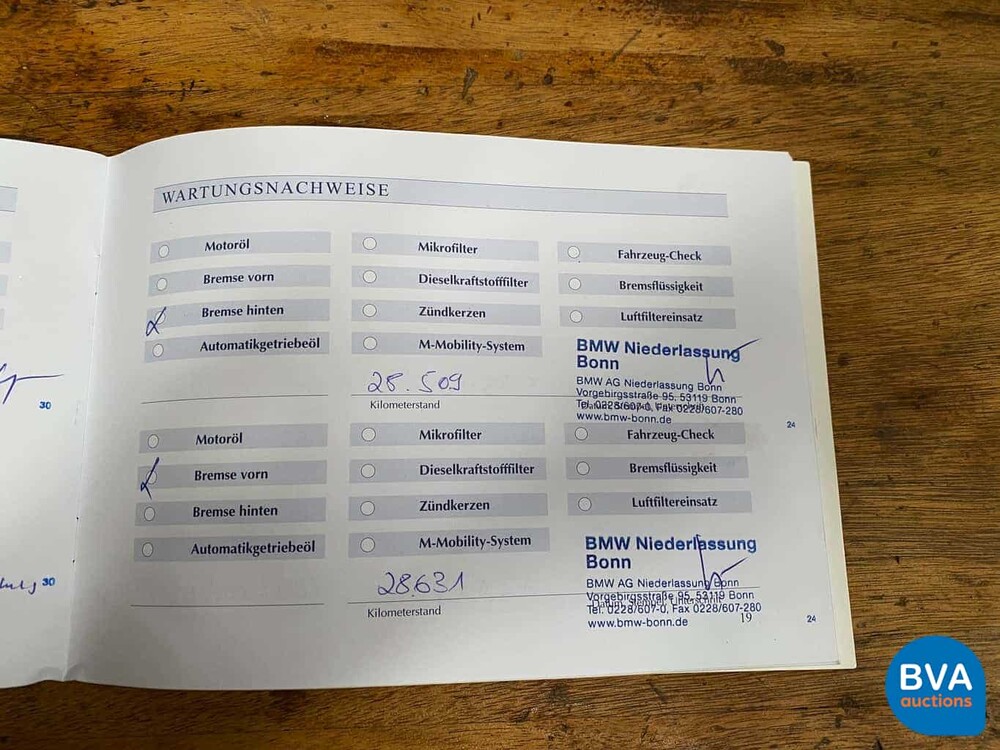 WARTUNGSNACHWEISE
Motoröl
Mikrofilter
Fahrzeug-Check
Bremse vorn
Dieselkraftstofffilter
Bremsflüssigkeit
Bremse hinten
Zündkerzen
Luftfiltereinsatz
Automatikgetriebeöl
M-Mobility-System
BMW Niederlassung
Bonn
28.509
BMW AG Niederlassung Bonn
Vorgebirgsstraße 95, 53119 Bonn
Kilometerstand
Tel. 0228/607-0, Fax 0228/607-280
www.bmw-bonn.de
30
24
Motoröl
Mikrofilter
Fahrzeug-Check
Bremse vorn
Dieselkraftstofffilter
Bremsflüssigkeit
Bremse hinten
Zündkerzen
Luftfiltereinsatz
Automatikgetriebeöl
M-Mobility-System
BMW Niederlassung
Bonn
28.631
BMW AG Niederlassung Bonn
Vorgebirgsstraße 95, 53119 Bonn
Kilometerstand
Tel. 0228/607-0, Fax 0228/607-280
www.bmw-bonn.de
30
19
24
BVA
auctions